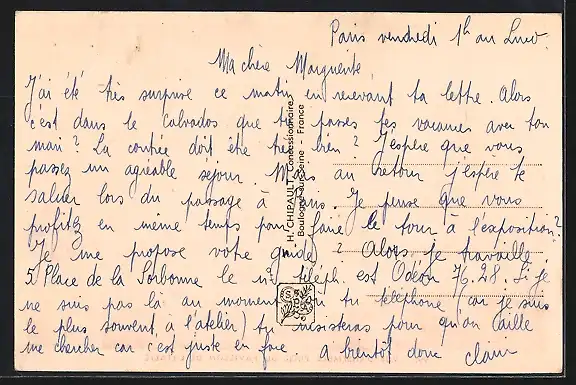 Paris vendredi 1h au Luxe.
Ma chère Marguerite
J'ai été très surprise ce matin en recevant ta lettre. Alors
c'est dans le Calvados que tu passes tes vacances avec ton
mari? La contrée doit être très bien? J'espère que vous
passez un agréable séjour. Mais au retour j'espère te
saluer lors du passage à Paris. Je pense que vous
profitez en même temps pour faire le tour à l'exposition?
Je me propose votre guide? Alors je travaille
5 Place de la Sorbonne le n° téléph. est Odéon 76.28. Si je
ne suis pas là au moment où tu téléphone (car je suis
le plus souvent à l'atelier) tu insisteras pour qu'on aille
me chercher car c'est juste en face à bientôt donc clair
H. CHIPAULT, Concessionnaire
Boulogne-sur-Seine - France